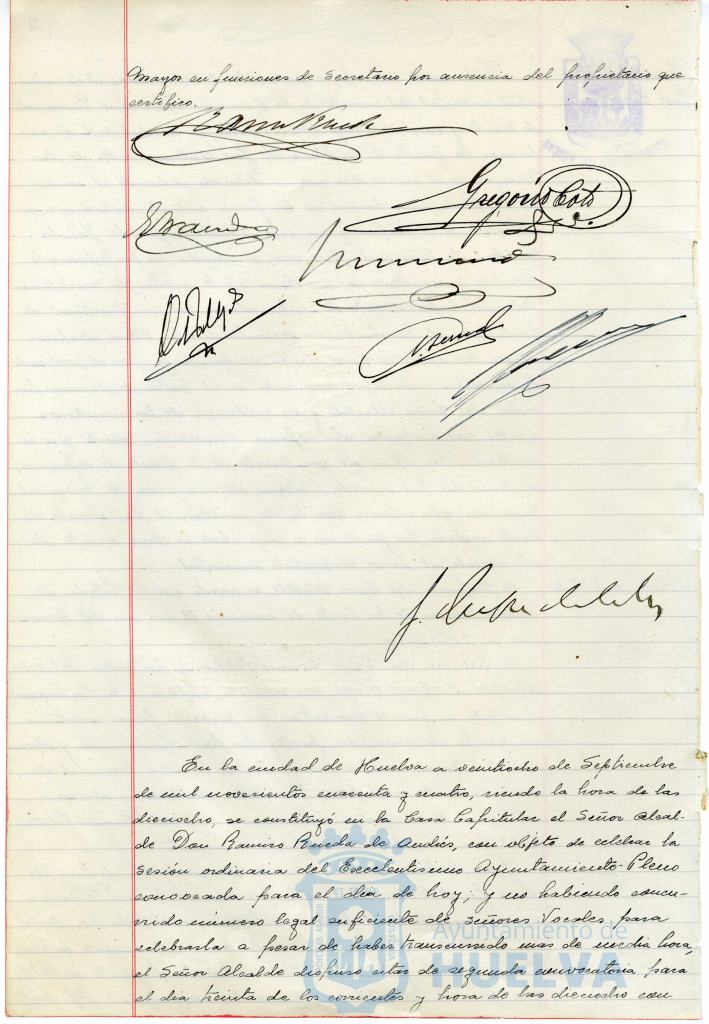 Mayor en funciones de Secretario por ausencia del propietario que
certifico.
Gregorio Coto
En la ciudad de Huelva a veintiocho de Septiembre
de mil novecientos cuarenta y cuatro, siendo la hora de las
dieciocho, se constituyó en la Casa Capitular el Señor Alcal-
de Don Ramiro Rueda de Andrés, con objeto de celebrar la
sesión ordinaria del Excelentisimo Ayuntamiento Pleno
convocada para el dia de hoy; y no habiendo concu-
rrido número legal suficiente de Señores Vocales para
celebrarla a pesar de haber transcurrido mas de media hora,
el Señor Alcalde dispuso citar de segunda convocatoria para
el dia treinta de los corrientes y hora de las dieciocho con
Ayuntamiento de
HUELVA